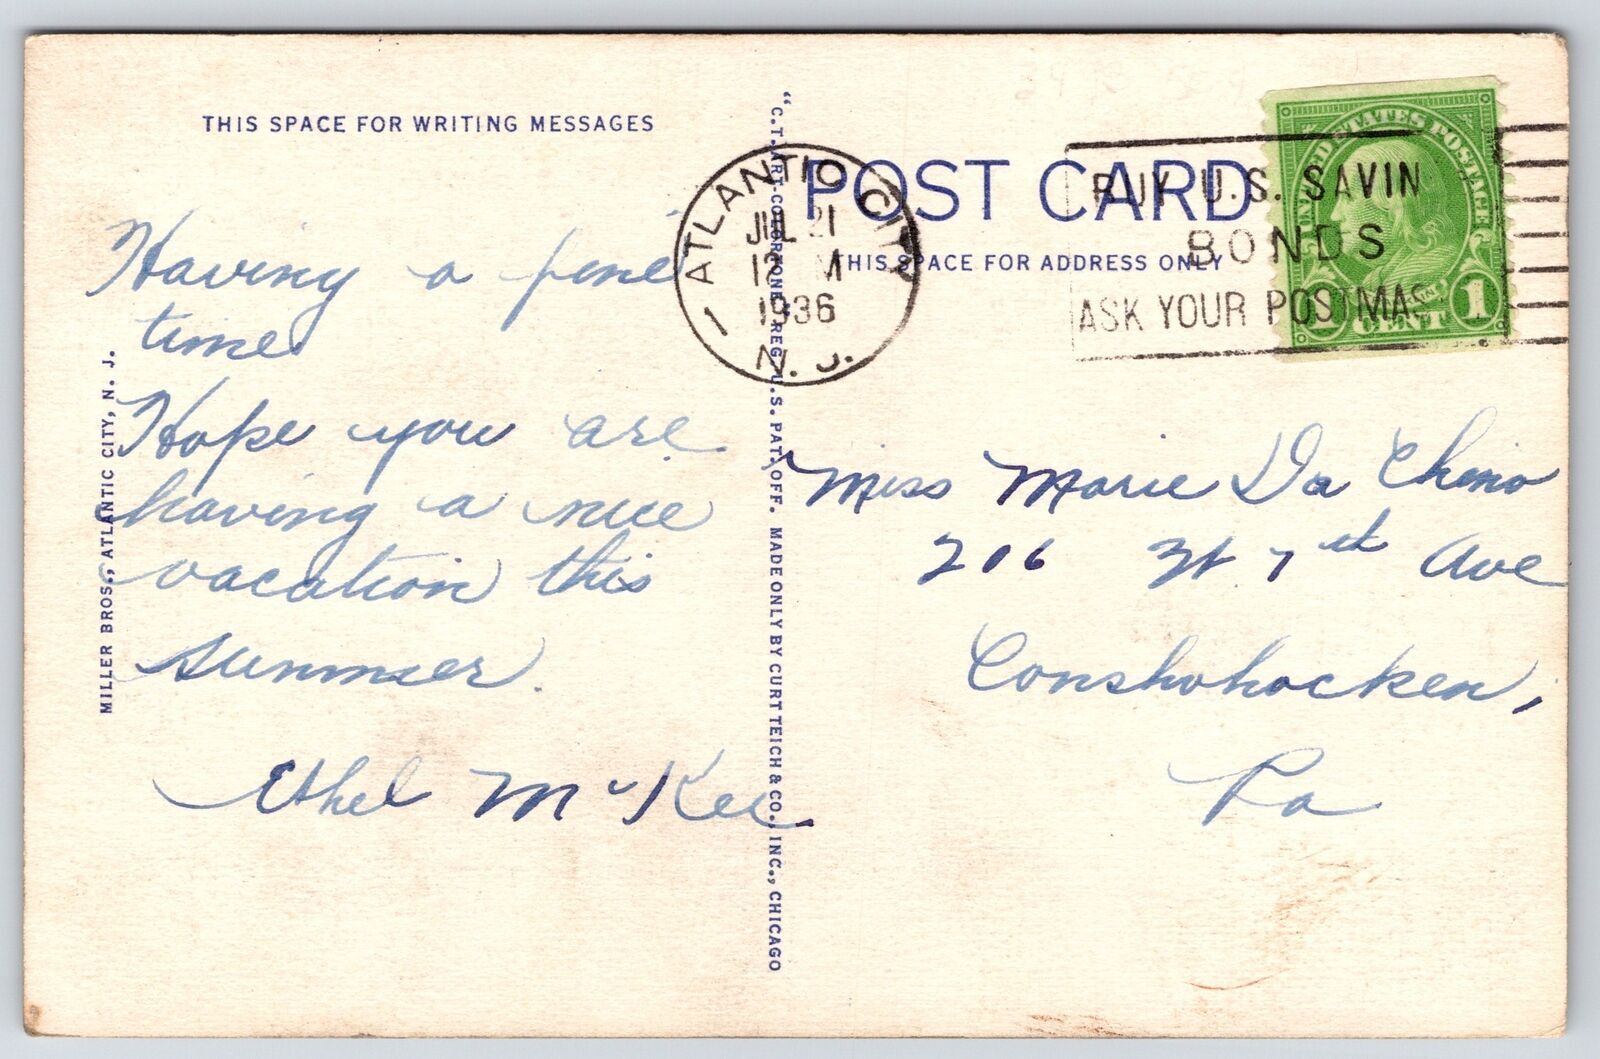 THIS SPACE FOR WRITING MESSAGES
Having a fine
time
Hope you are
having a nice
vacation this
summer.
Ethel McKee
MILLER BROS., ATLANTIC CITY, N. J.
"C.T. ART-COLORTONE" REG. U.S. PAT. OFF. MADE ONLY BY CURT TEICH & CO., INC., CHICAGO
POST CARD
THIS SPACE FOR ADDRESS ONLY
ATLANTIC CITY
JUL 21
12 M
1936
N. J.
1
BUY U.S. SAVIN
BONDS
ASK YOUR POSTMAS
UNITED STATES POSTAGE
1 CENT 1
Miss Marie Da Chino
206 W 7th Ave
Conshohocken,
Pa